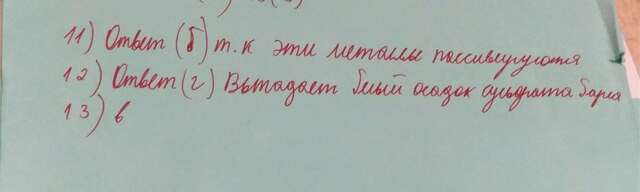 11) Ответ (б) т.к эти металлы пассивируются
12) Ответ (г) Выпадает белый осадок сульфата бария
13) в